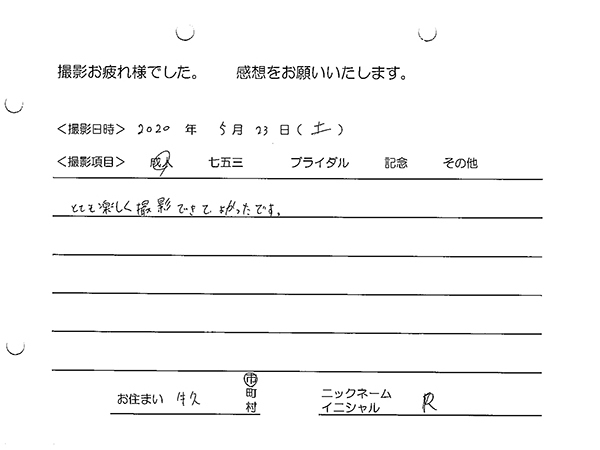 撮影お疲れ様でした。　感想をお願いいたします。
<撮影日時> 2020 年 5月 23 日 (土)
<撮影項目> 成人 七五三 ブライダル 記念 その他
とても楽しく撮影できてよかったです。
お住まい 牛久 市町村 ニックネーム イニシャル R